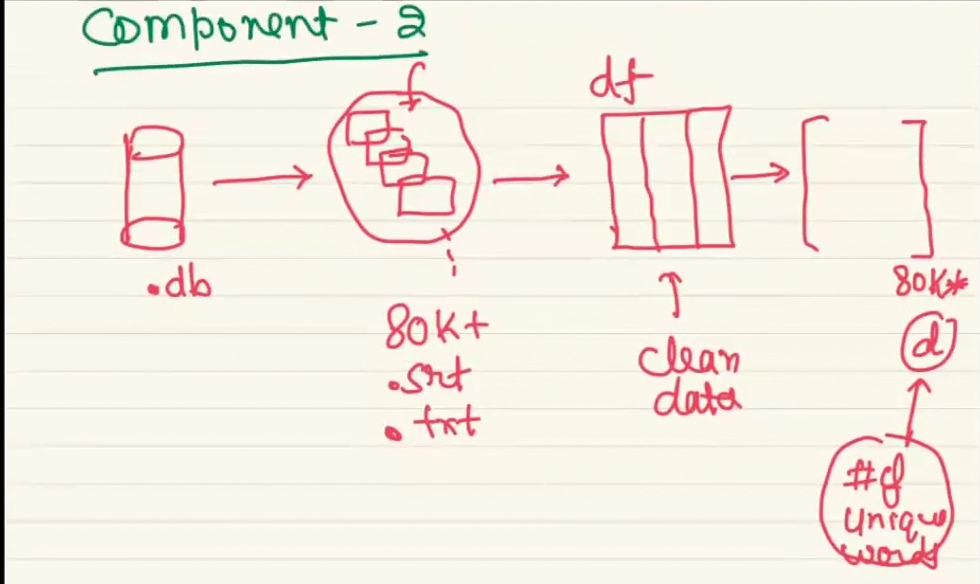 Component - 2
df
.db
80K+
.srt
.txt
clean
data
80K*
d
# of
unique
words